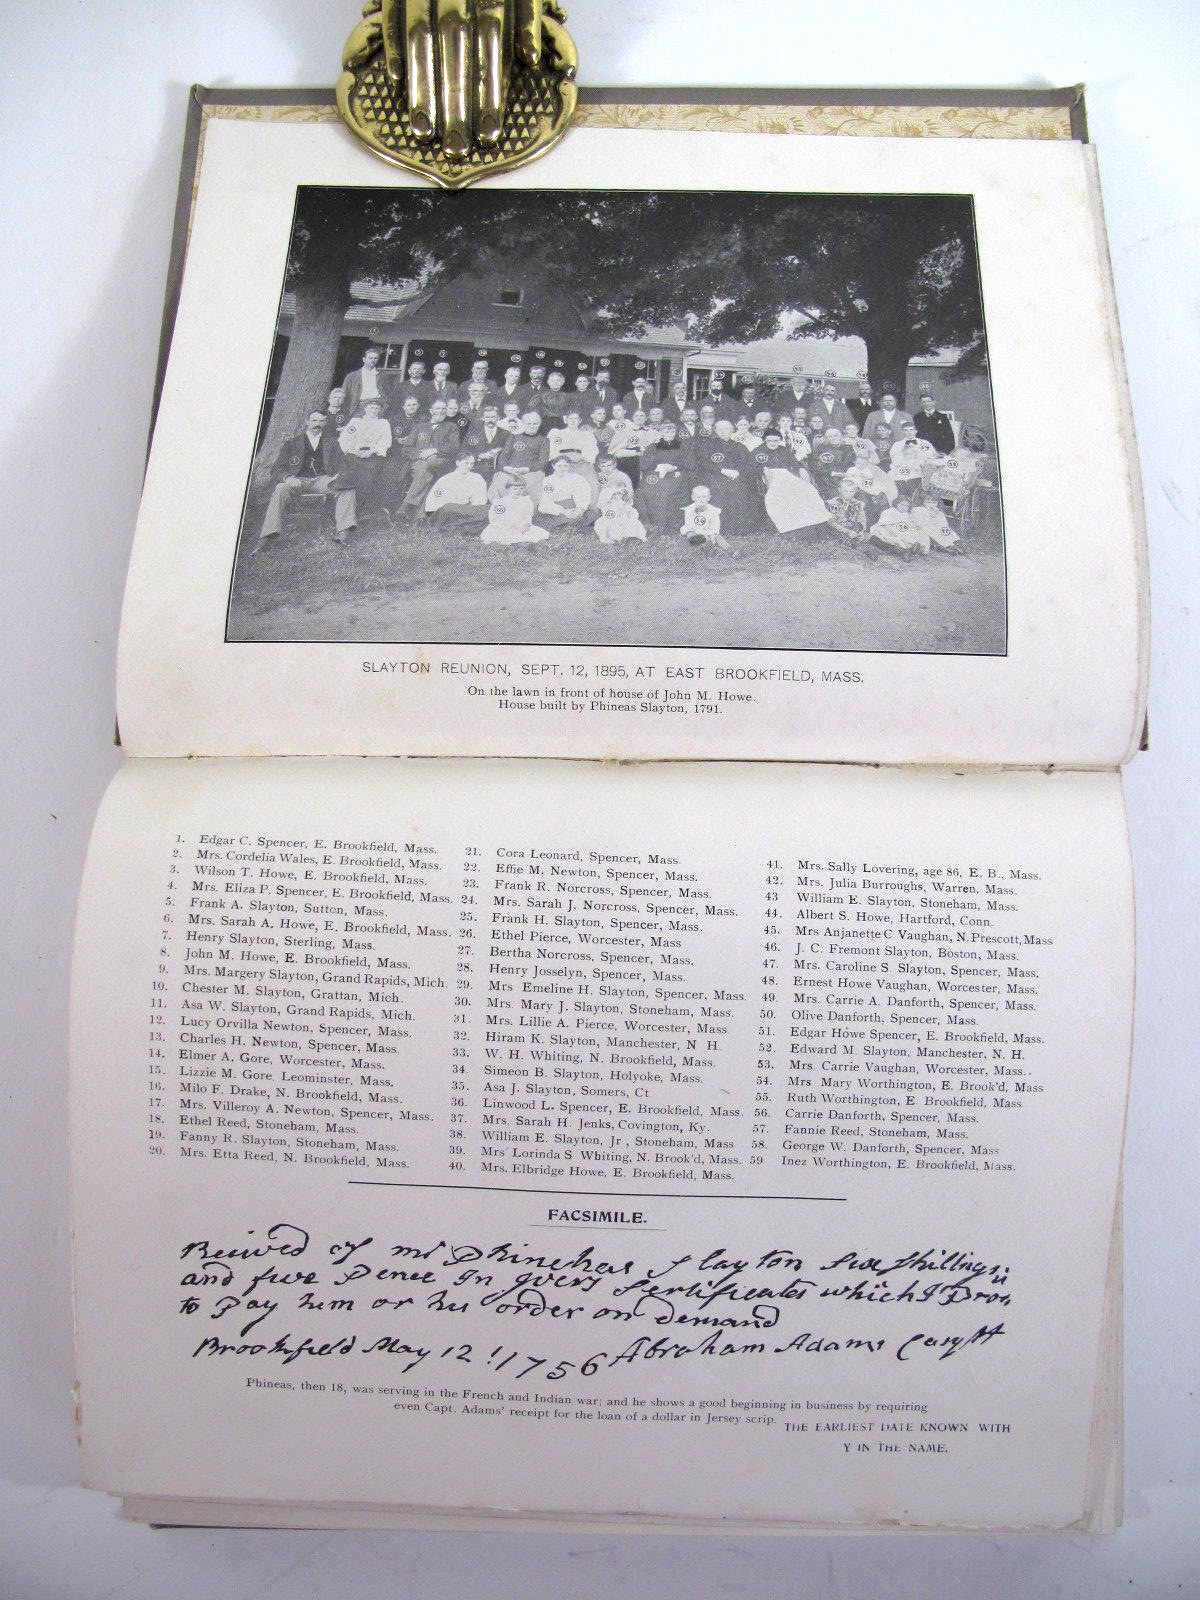 SLAYTON REUNION, SEPT. 12, 1895, AT EAST BROOKFIELD, MASS.
On the lawn in front of house of John M. Howe.
House built by Phineas Slayton, 1791.
1. Edgar C. Spencer, E. Brookfield, Mass.
2. Mrs. Cordelia Wales, E. Brookfield, Mass.
3. Wilson T. Howe, E. Brookfield, Mass.
4. Mrs. Eliza P. Spencer, E. Brookfield, Mass.
5. Frank A. Slayton, Sutton, Mass.
6. Mrs. Sarah A. Howe, E. Brookfield, Mass.
7. Henry Slayton, Sterling, Mass.
8. John M. Howe, E. Brookfield, Mass.
9. Mrs. Margery Slayton, Grand Rapids, Mich.
10. Chester M. Slayton, Grattan, Mich.
11. Asa W. Slayton, Grand Rapids, Mich.
12. Lucy Orvilla Newton, Spencer, Mass.
13. Charles H. Newton, Spencer, Mass.
14. Elmer A. Gore, Worcester, Mass.
15. Lizzie M. Gore, Leominster, Mass.
16. Milo F. Drake, N. Brookfield, Mass.
17. Mrs. Villeroy A. Newton, Spencer, Mass.
18. Ethel Reed, Stoneham, Mass.
19. Fanny R. Slayton, Stoneham, Mass.
20. Mrs. Etta Reed, N. Brookfield, Mass.
21. Cora Leonard, Spencer, Mass.
22. Effie M. Newton, Spencer, Mass.
23. Frank R. Norcross, Spencer, Mass.
24. Mrs. Sarah J. Norcross, Spencer, Mass.
25. Frank H. Slayton, Spencer, Mass.
26. Ethel Pierce, Worcester, Mass
27. Bertha Norcross, Spencer, Mass.
28. Henry Josselyn, Spencer, Mass.
29. Mrs Emeline H. Slayton, Spencer, Mass.
30. Mrs. Mary J. Slayton, Stoneham, Mass.
31. Mrs. Lillie A. Pierce, Worcester, Mass
32. Hiram K. Slayton, Manchester, N H
33. W. H. Whiting, N. Brookfield, Mass.
34 Simeon B. Slayton, Holyoke, Mass.
35. Asa J. Slayton, Somers, Ct
36. Linwood L. Spencer, E. Brookfield, Mass
37. Mrs. Sarah H. Jenks, Covington, Ky.
38. William E. Slayton, Jr, Stoneham, Mass
39. Mrs Lorinda S Whiting, N. Brook'd, Mass.
40. Mrs. Elbridge Howe, E. Brookfield, Mass.
41. Mrs. Sally Lovering, age 86, E. B., Mass.
42. Mrs. Julia Burroughs, Warren, Mass.
43 William E. Slayton, Stoneham, Mass.
44. Albert S. Howe, Hartford, Conn.
45. Mrs Anjanette C Vaughan, N. Prescott, Mass
46. J. C. Fremont Slayton, Boston, Mass.
47. Mrs. Caroline S. Slayton, Spencer, Mass.
48. Ernest Howe Vaughan, Worcester, Mass.
49. Mrs. Carrie A. Danforth, Spencer, Mass.
50. Olive Danforth, Spencer, Mass.
51. Edgar Howe Spencer, E. Brookfield, Mass.
52. Edward M. Slayton, Manchester, N. H.
53. Mrs. Carrie Vaughan, Worcester, Mass.
54. Mrs Mary Worthington, E. Brook'd, Mass
55. Ruth Worthington, E. Brookfield, Mass
56. Carrie Danforth, Spencer, Mass.
57. Fannie Reed, Stoneham, Mass.
58. George W. Danforth, Spencer, Mass
59 Inez Worthington, E. Brookfield, Mass.
FACSIMILE.
Recived of mr Phinehas Slayton Six shillings
and five Pence In Sertificates which I Prom
to Pay him or his order on demand
Brookfield May 12 1756 Abraham Adams
Phineas, then 18, was serving in the French and Indian war; and he shows a good beginning in business by requiring
even Capt. Adams' receipt for the loan of a dollar in Jersey scrip.
THE EARLIEST DATE KNOWN WITH
Y IN THE NAME.